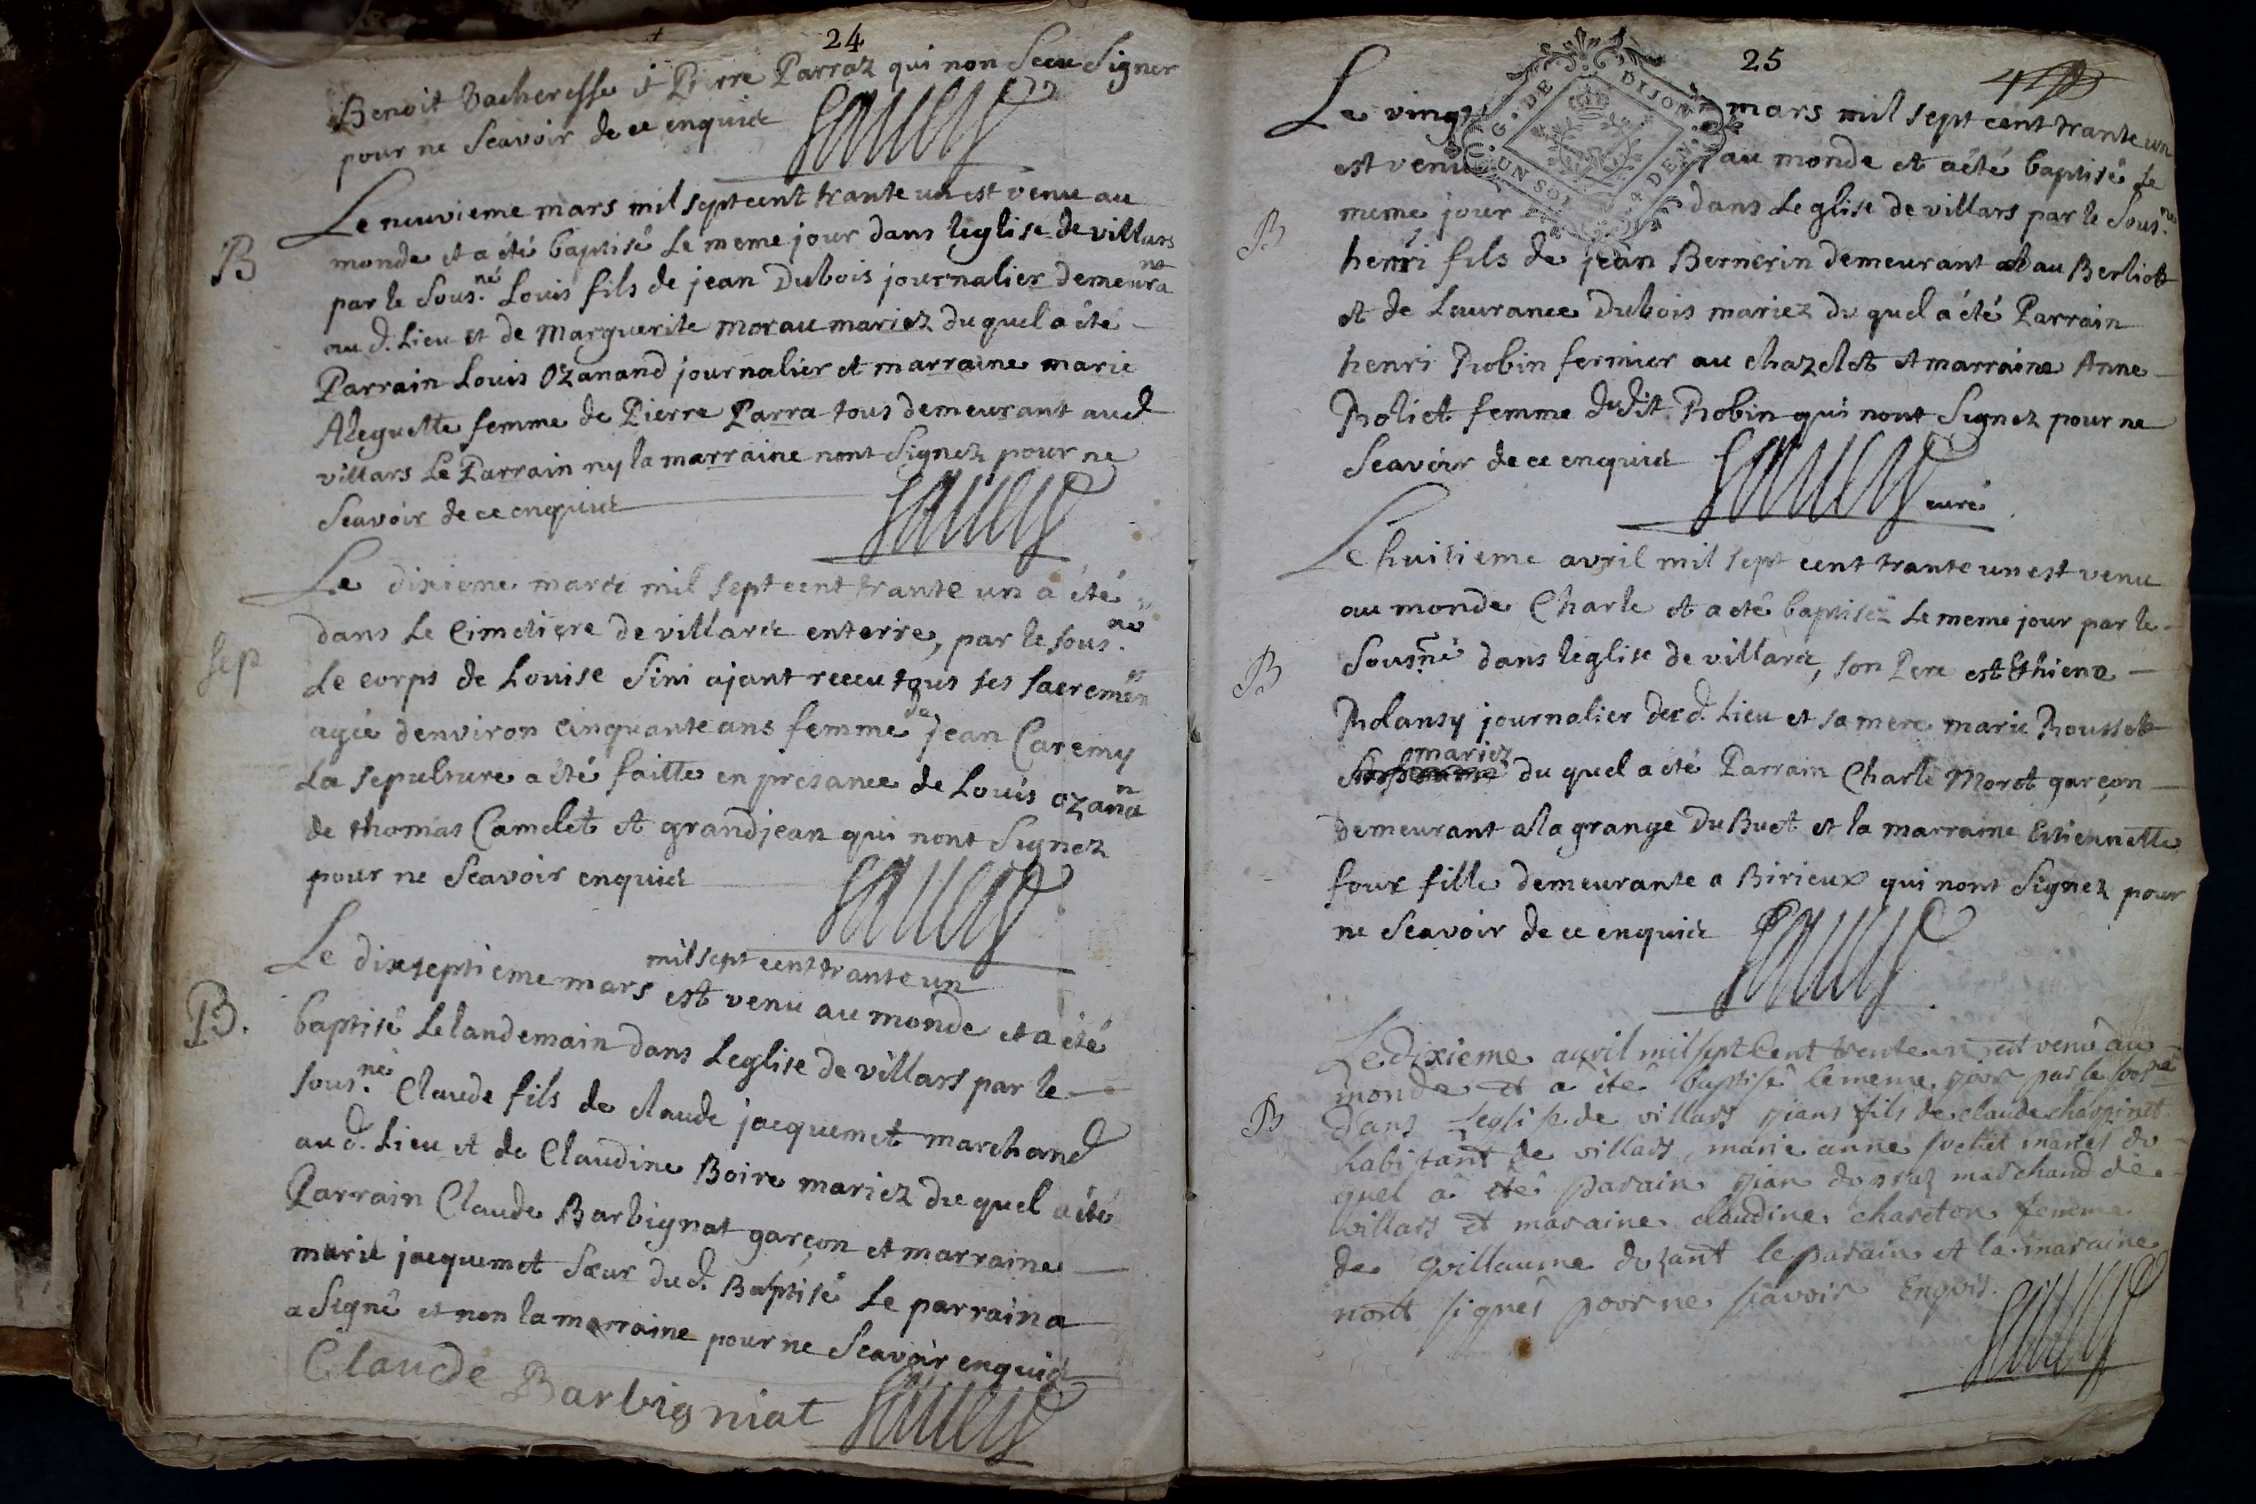 24
Benoit Vacheresse et Pierre Parraz qui non Sceu Signer
pour ne Scavoir de ce enquict
Le neuvieme mars mil sept cent trante un est venu au
monde et a été baptisé Le meme jour dans leglise de villars
B
par le Sous.né Louis fils de jean Dubois journalier demeurant
au d. Lieu et de Marguerite morau mariez du quel a été
Parrain Louis Ozanand journalier et marraine marie
Aleguette femme de Pierre Parra tous demeurant aud
villars Le Parrain ny la marraine nont Signez pour ne
Scavoir de ce enquict
Le dixieme mars mil sept cent trante un a été
dans Le Cimetiere de villars enterre, par le sous.né
Sep
Le corps de Louise Sini ajant receu tous ses sacremens
agée denviron cinquante ans femme de jean Caremy
La sepulture a été faitte en presance de Louis ozanan
de thomas Camelet et grandjean qui nont Signez
pour ne Scavoir enquict
Le dixseptieme mars mil sept cent trante un est venu au monde et a été
B.
baptisé Lelandemain dans Leglise de villars par le
sous.né Claude fils de claude jacquemet marchand
au d. Lieu et de Claudine Boire mariez du quel a été
Parrain Claude Barbignat garçon et marraine
marie jacquemet Sœur du d. Baptisé Le parrain a
a Signé et non la marraine pour ne Scavoir enquict
Claude Barbigniat
25
G. DE DIJON
UN SOL 4 DEN.
Le vingt mars mil sept cent trante un
est venu au monde et a été baptisé Le
meme jour dans Leglise de villars par le Sous.né
B
henri fils de jean Bernerin demeurant au Berliott
et de Laurance Dubois mariez du quel a été Parrain
henri Robin fermier au chazelet et marraine Anne
Roliet femme dudit Robin qui nont Signez pour ne
Scavoir de ce enquict
curé
Le huitieme avril mil sept cent trante un est venu
au monde Charle et a été baptisez Le meme jour par le
B
Sousné dans leglise de villars, son Pere est Ethiene
Rolansy journalier de cd. Lieu et sa mere marie Roussett
mariez du quel a été Parrain Charle Moret garçon
demeurant a la grange Du Buet et la marraine Etiennette
four fille demeurante a Birieux qui nont Signez pour
ne Scavoir de ce enquict
Le dixieme avril mil sept Cent trente un est venu au
monde et a été baptisé le meme jour par le sousné
B
dans Leglise de villars jians fils de claude chappinet
habitant de villars marie anne sochet mariés du
quel a été parain jian durraz marchand de
villars et maraine claudine chareton femme
de guillaume dozant le parain et la maraine
nont signes pour ne scavoir Enquis.